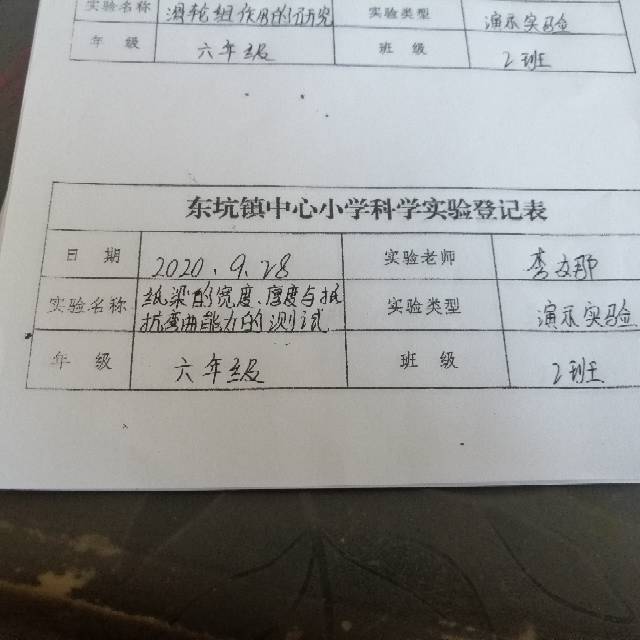 实验名称 滑轮组作用的研究 实验类型 演示实验
年 级 六年级 班 级 2班
东坑镇中心小学科学实验登记表
日 期 2020.9.28 实验老师 李
实验名称 纸梁的宽度、厚度与抵
抗弯曲能力的测试 实验类型 演示实验
年 级 六年级 班 级 2班